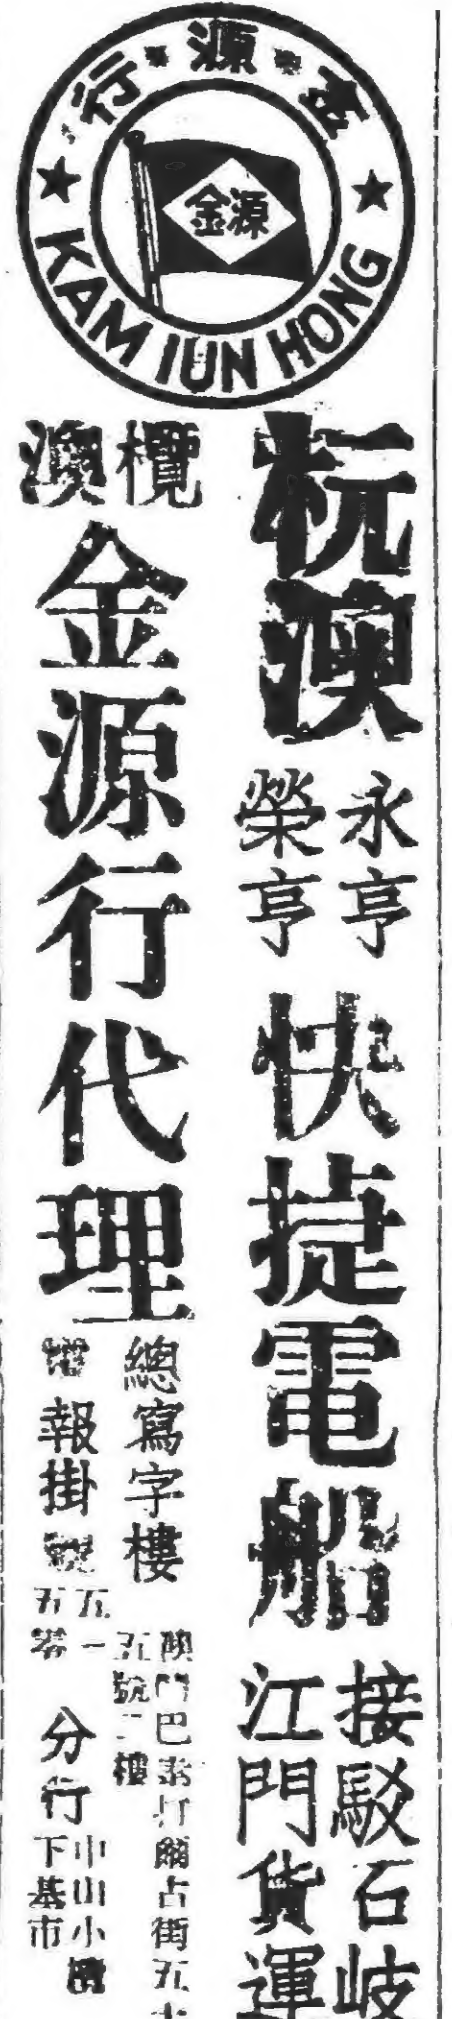 金源行
金源
KAM IUN HONG
杬澳
永亨
榮亨
快捷電船
接駁石岐
江門貨運
欖澳
金源行代理
總寫字樓
澳門巴素打爾古街五十
五號二樓
電報掛號
五一
五零
分行
中山小欖
下基市